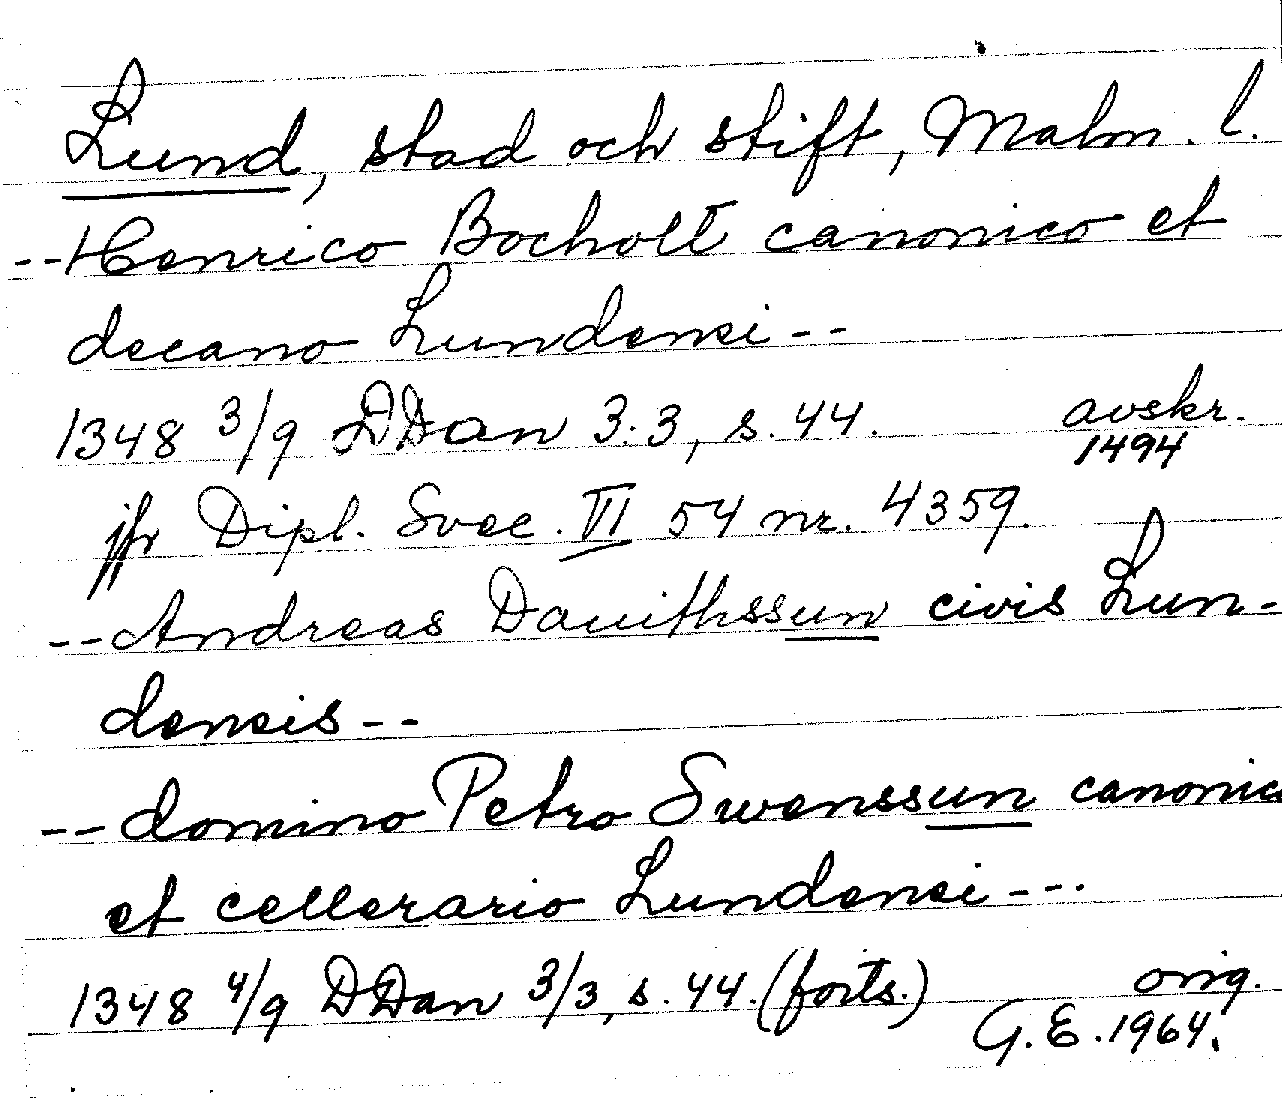 Lund, stad och stift, Malm. l.
-- Henrico Bocholt canonico et
decano Lundensi --
1348 3/9 DDan 3.3, s. 44. avskr.
1494
jfr Dipl. Svec. VI 54 nr. 4359.
-- Andreas Dauithssun civis Lun-
densis --
-- domino Petro Swenssun canonico
et cellerario Lundensi ---.
1348 4/9 DDan 3/3, s. 44. (forts.) orig.
G.E. 1964.